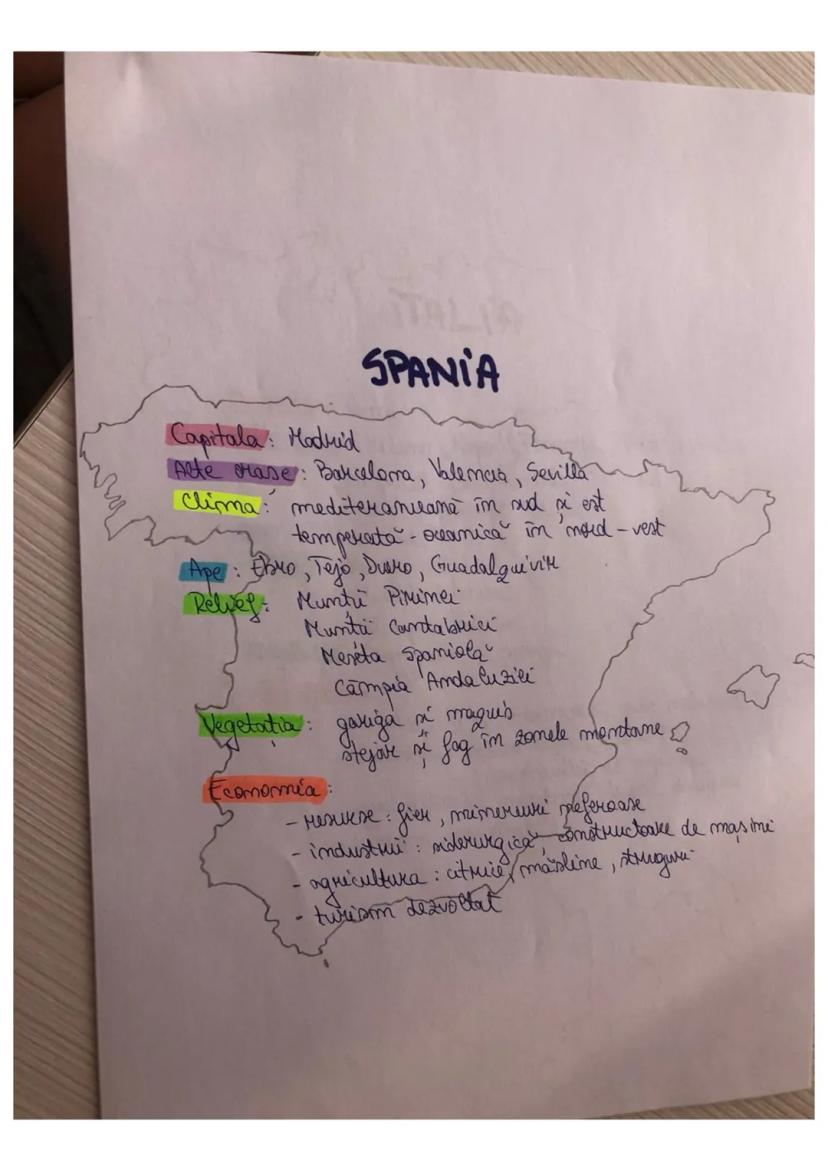 SPANIA
Capitala: Madrid
Alte orașe: Barcelona, Valencia, Sevilla
Clima: mediteraneană în sud și est
temperată-oceanică în nord-vest
Ape: Ebro, Tejo, Duero, Guadalquivir
Relief: Munții Pirinei
Munții Cantabrici
Meseta Spaniolă
Câmpia Andaluziei
Vegetația: gariga și maquis
stejar și fag în zonele montane
Economia:
- resurse: fier, minereuri neferoase
- industrii: siderurgică, constructoare de mașini
- agricultura: citrice, măsline, struguri
- turism dezvoltat